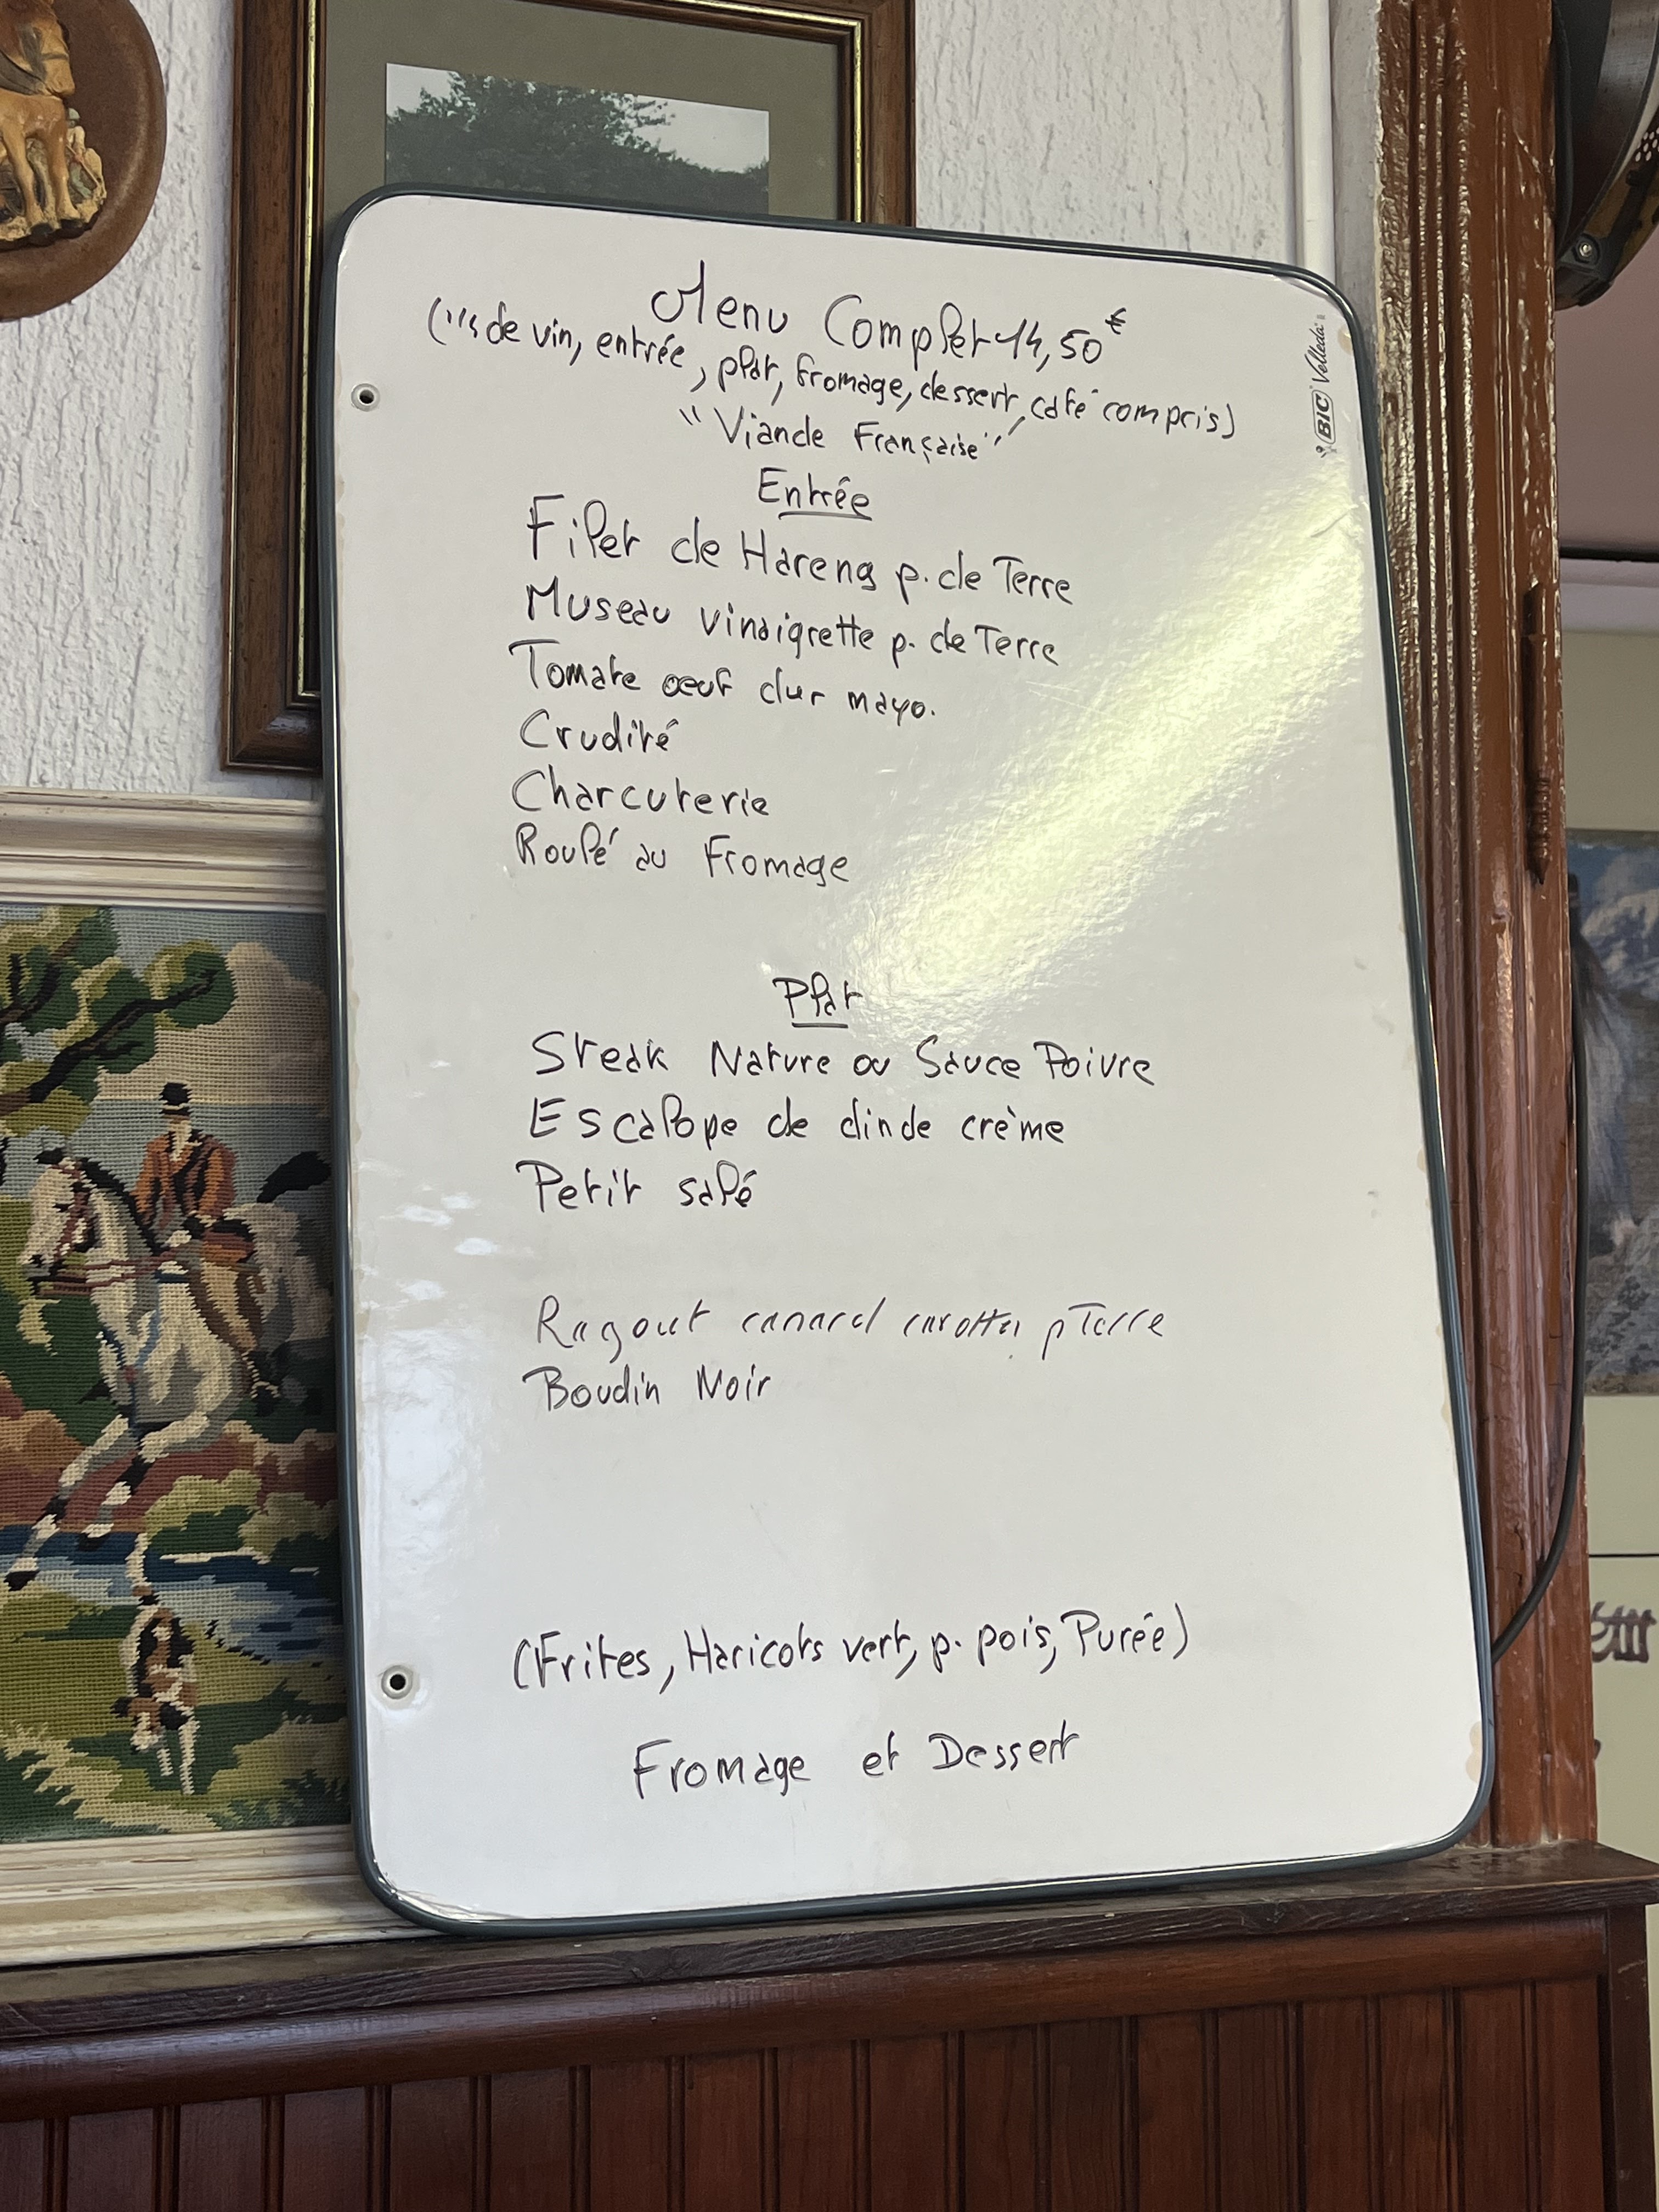 Menu Complet 14,50€
(1/4 de vin, entrée, plat, fromage, dessert, café compris)
"Viande Française"
Entrée
Filet de Hareng p. de Terre
Museau vinaigrette p. de Terre
Tomate œuf dur mayo.
Crudité
Charcuterie
Roulé au Fromage
Plat
Steak Nature ou Sauce Poivre
Escalope de dinde crème
Petit salé
Ragout canard carottes p Terre
Boudin Noir
(Frites, Haricots vert, p. pois, Purée)
Fromage et Dessert
BIC Velleda